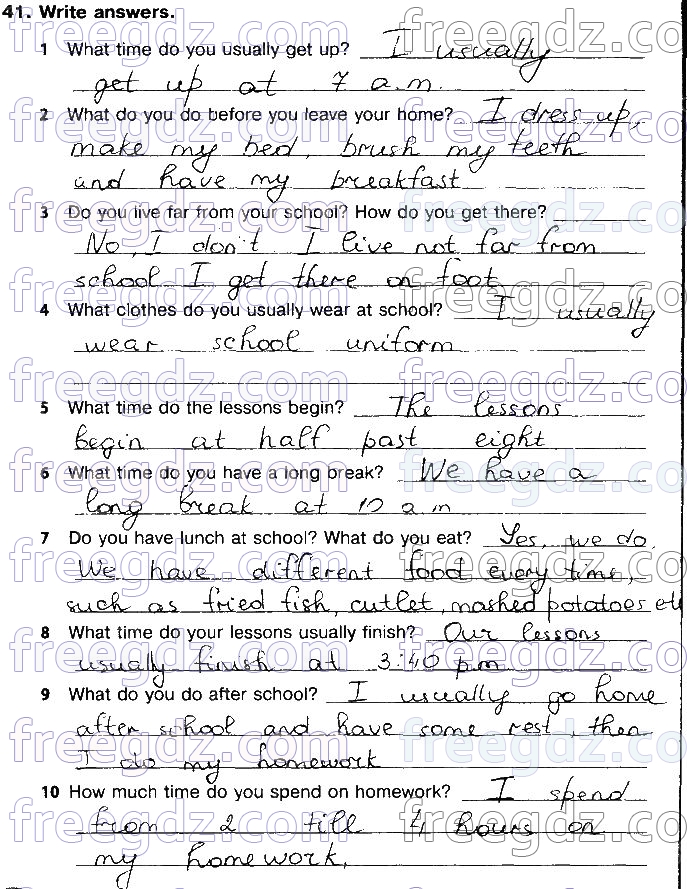 41. Write answers.
1 What time do you usually get up? I usually
get up at 7 a.m.
2 What do you do before you leave your home? I dress up,
make my bed, brush my teeth
and have my breakfast
3 Do you live far from your school? How do you get there?
No, I don't I live not far from
school I get there on foot
4 What clothes do you usually wear at school? I usually
wear school uniform
5 What time do the lessons begin? The lessons
begin at half past eight
6 What time do you have a long break? We have a
long break at 10 a.m
7 Do you have lunch at school? What do you eat? Yes, we do.
We have different food every time,
such as fried fish, cutlet, mashed potatoes etc
8 What time do your lessons usually finish? Our lessons
usually finish at 3:40 p.m
9 What do you do after school? I usually go home
after school and have some rest, then
I do my homework
10 How much time do you spend on homework? I spend
from 2 till 4 hours on
my homework.